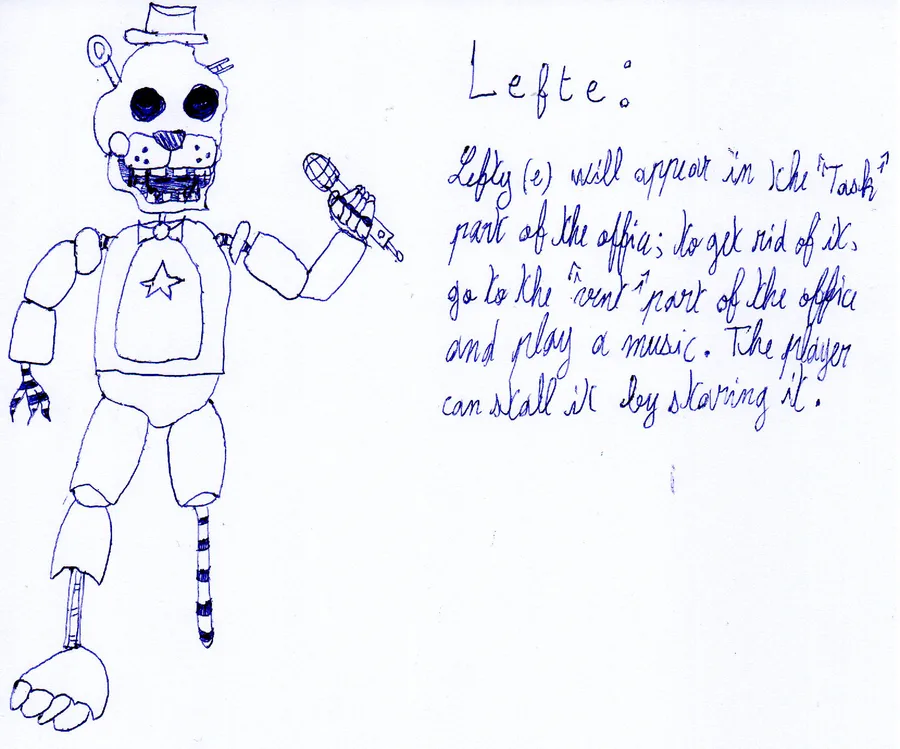 Lefte:
Lefty (e) will appear in the "Task"
part of the office; to get rid of it,
go to the "vent" part of the office
and play a music. The player
can stall it by staring it.